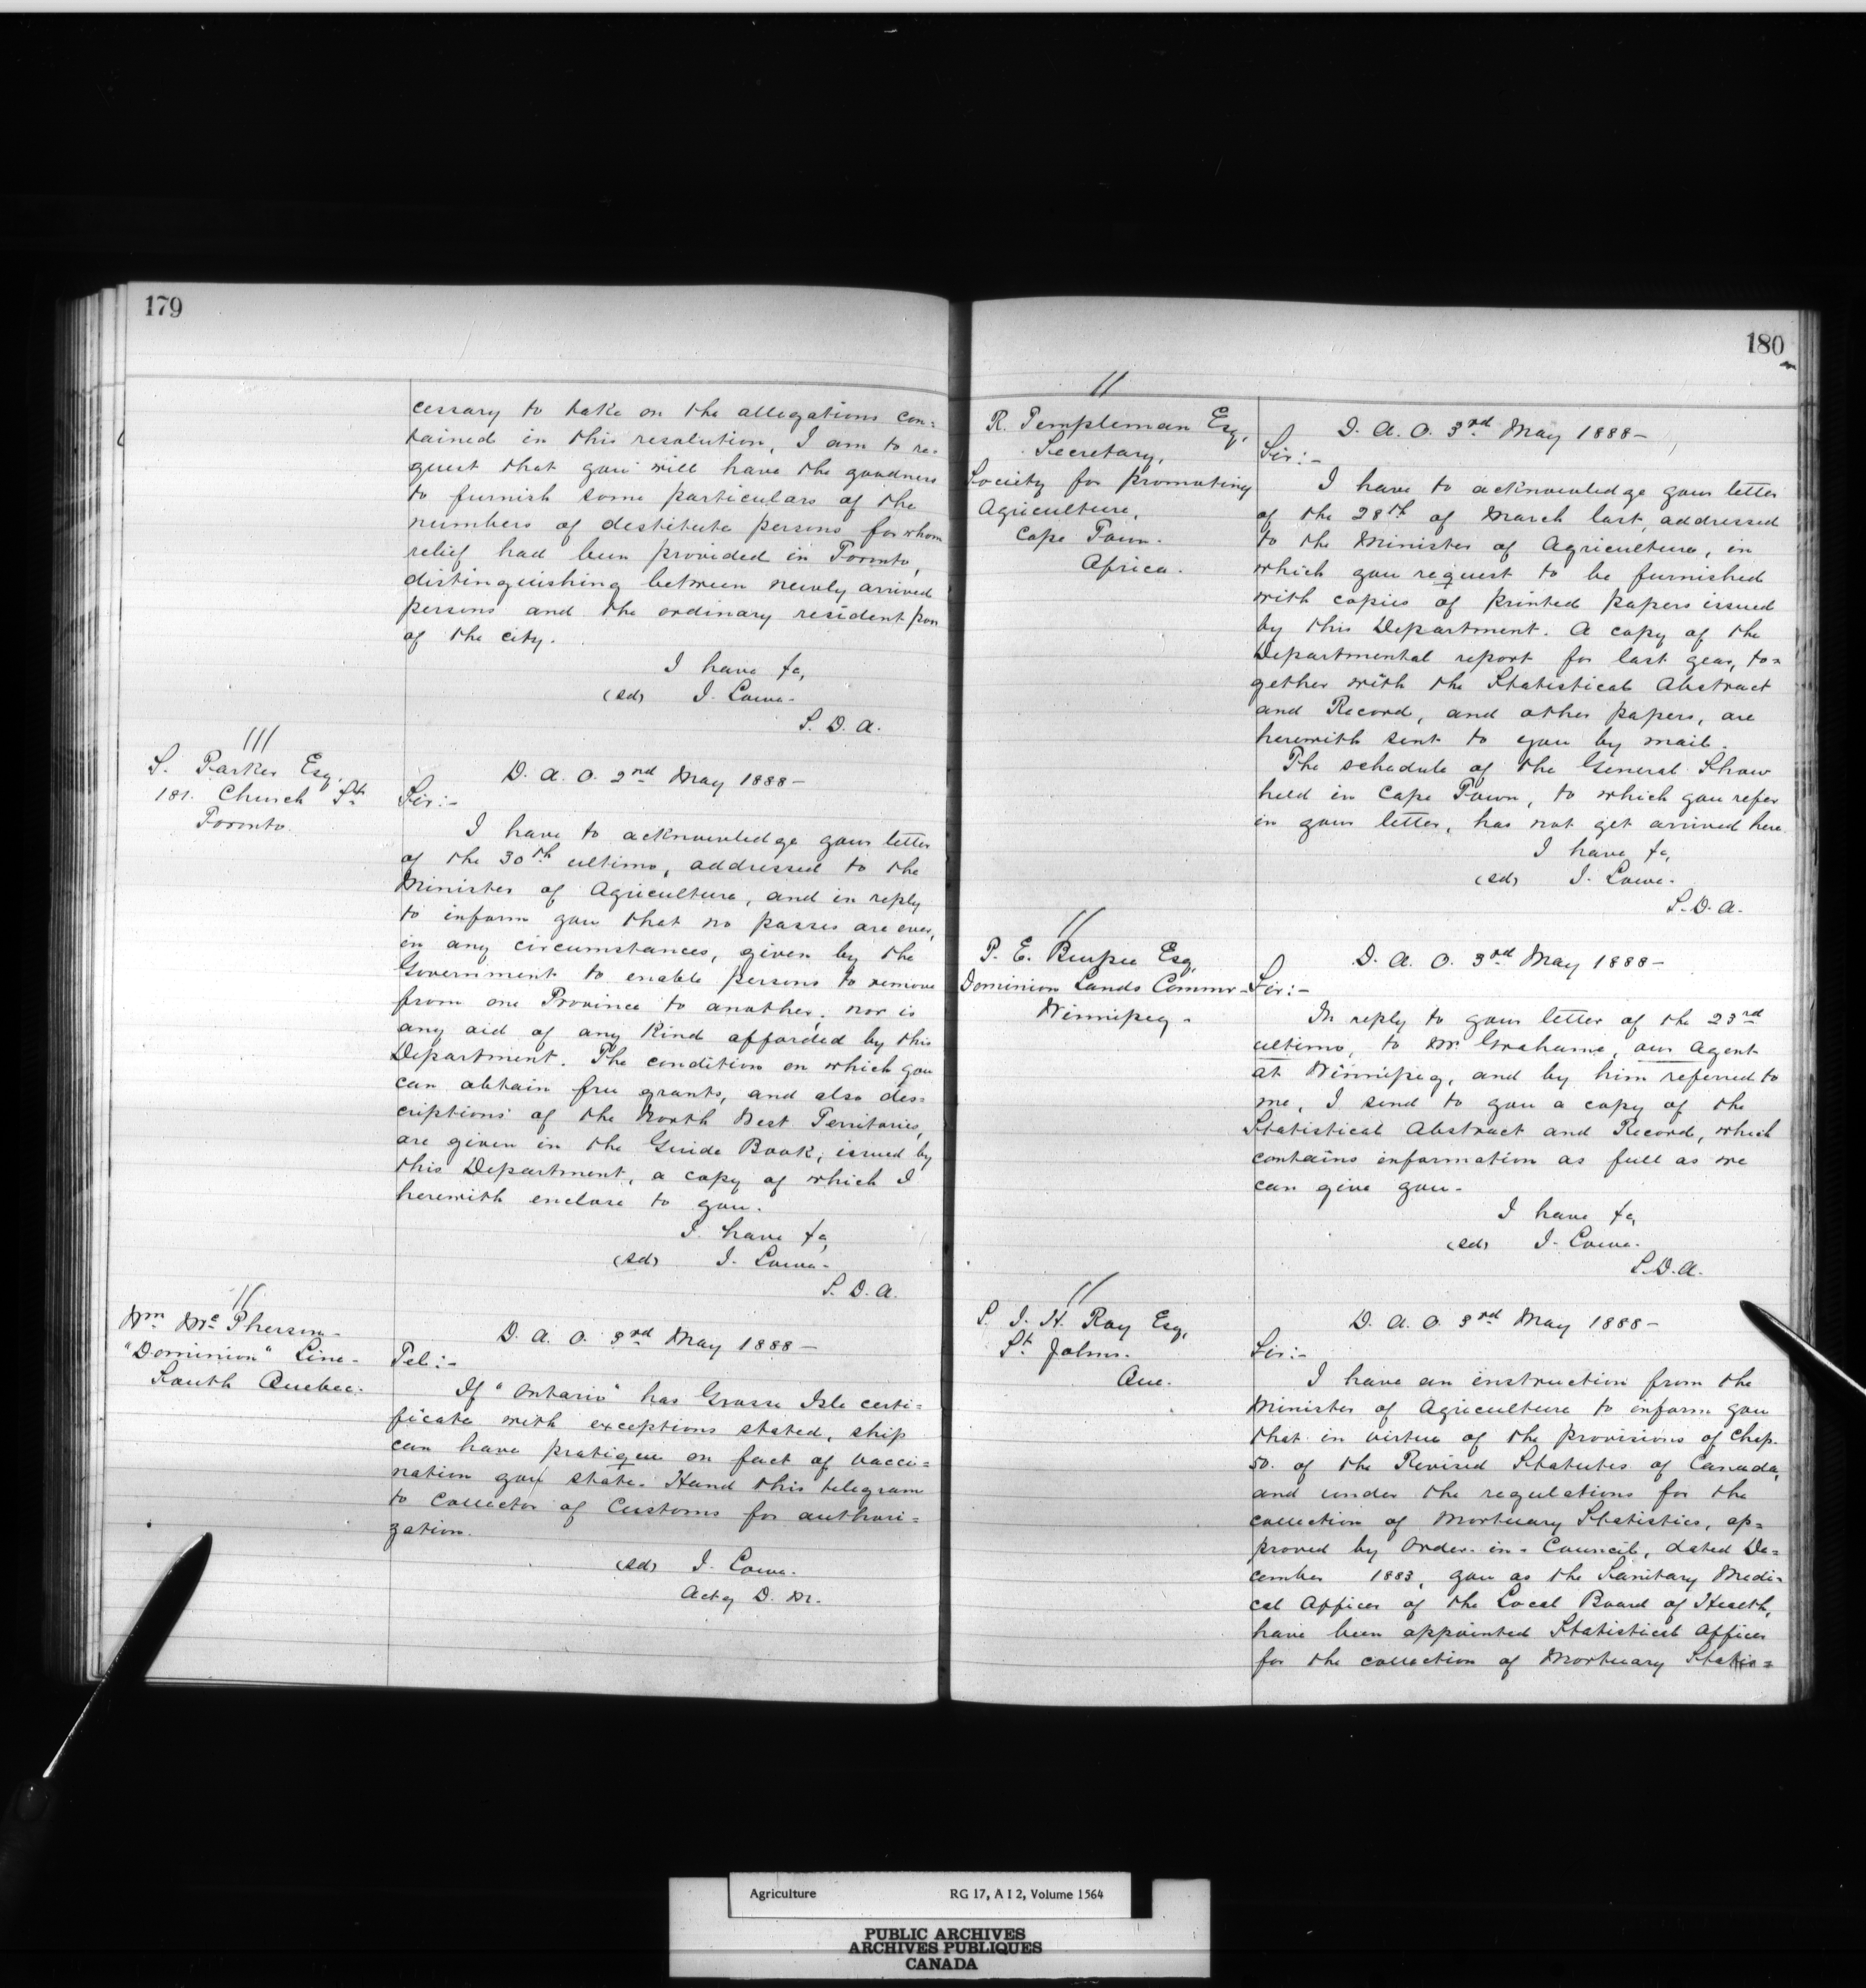 179
cessary to take on the allegations con=
tained in this resolution, I am to re=
quest that you will have the goodness
to furnish some particulars of the
numbers of destitute persons for whom
relief had been provided in Toronto,
distinguishing between newly arrived
persons and the ordinary resident poor
of the city.
I have &c,
(sd) J. Lowe.
S. D. A.
///
S. Parker Esq,
181. Church St
Toronto.
D. A. O. 2nd May 1888 -
Sir:-
I have to acknowledge your letter
of the 30th ultimo, addressed to the
Minister of Agriculture, and in reply
to inform you that no passes are ever,
in any circumstances, given by the
Government to enable persons to remove
from one Province to another; nor is
any aid of any kind afforded by this
Department. The condition on which you
can obtain free grants, and also des=
criptions of the North West Territories,
are given in the Guide Book, issued by
this Department, a copy of which I
herewith enclose to you.
I have &c,
(sd) J. Lowe.
S. D. A.
//
Wm McPherson -
"Dominion" Line -
South Quebec.
D. A. O. 3rd May 1888 -
Tel:-
If "Ontario" has Grosse Isle certi=
ficate with exceptions stated, ship
can have pratique on fact of vacci=
nation you state. Hand this telegram
to Collector of Customs for authori=
zation.
(sd) J. Lowe.
Actg D. M.
180
//
R. Templeman Esq,
Secretary,
Society for promoting
Agriculture,
Cape Town.
Africa.
D. A. O. 3rd May 1888 -
Sir:-
I have to acknowledge your letter
of the 28th of March last, addressed
to the Minister of Agriculture, in
which you request to be furnished
with copies of printed papers issued
by this Department. A copy of the
Departmental report for last year, to=
gether with the Statistical Abstract
and Record, and other papers, are
herewith sent to you by mail.
The schedule of the General Show
held in Cape Town, to which you refer
in your letter, has not yet arrived here.
I have &c,
(sd) J. Lowe.
S. D. A.
//
P. E. Burpee Esq,
Dominion Lands Commr -
Winnipeg -
D. A. O. 3rd May 1888 -
Sir:-
In reply to your letter of the 23rd
ultimo, to Mr. Grahame, our Agent
at Winnipeg, and by him referred to
me, I send to you a copy of the
Statistical Abstract and Record, which
contains information as full as we
can give you -
I have &c,
(sd) J. Lowe.
S. D. A.
//
P. J. H. Roy Esq,
St. Johns.
Que.
D. A. O. 3rd May 1888 -
Sir:-
I have an instruction from the
Minister of Agriculture to inform you
that in virtue of the provisions of Chap.
50. of the Revised Statutes of Canada,
and under the regulations for the
collection of Mortuary Statistics, ap=
proved by Order-in-Council, dated De=
cember 1883, you as the Sanitary Medi=
cal Officer of the Local Board of Health,
have been appointed Statistical Officer
for the collection of Mortuary Statis=
Agriculture RG 17, A I 2, Volume 1564
PUBLIC ARCHIVES
ARCHIVES PUBLIQUES
CANADA